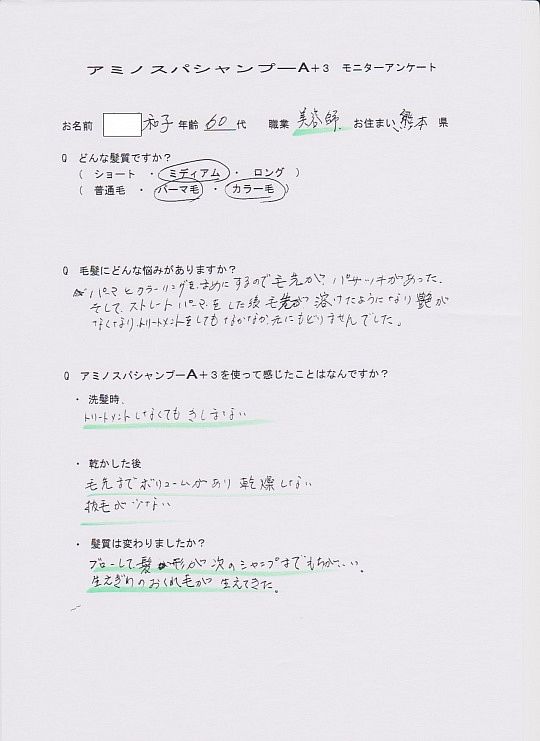 アミノスパシャンプーA+3 モニターアンケート
お名前 和子 年齢 60 代 職業 美容師 お住まい 熊本 県
Q どんな髪質ですか?
( ショート ・ ミディアム ・ ロング )
( 普通毛 ・ パーマ毛 ・ カラー毛 )
Q 毛髪にどんな悩みがありますか?
パーマとカラーリングをまめにするので毛先が、パサッキがあった。
そして、ストレートパーマをした後毛先が溶けたようになり艶が
なくなり、トリートメントをしてもなかなか元にもどりませんでした。
Q アミノスパシャンプーA+3を使って感じたことはなんですか?
・ 洗髪時、
トリートメントしなくてもきしまない
・ 乾かした後
毛先までボリュームがあり乾燥しない
抜毛が少ない
・ 髪質は変わりましたか?
ブローして髪形が次のシャンプーまでもちがいい。
生えぎわのおくれ毛が生えてきた。